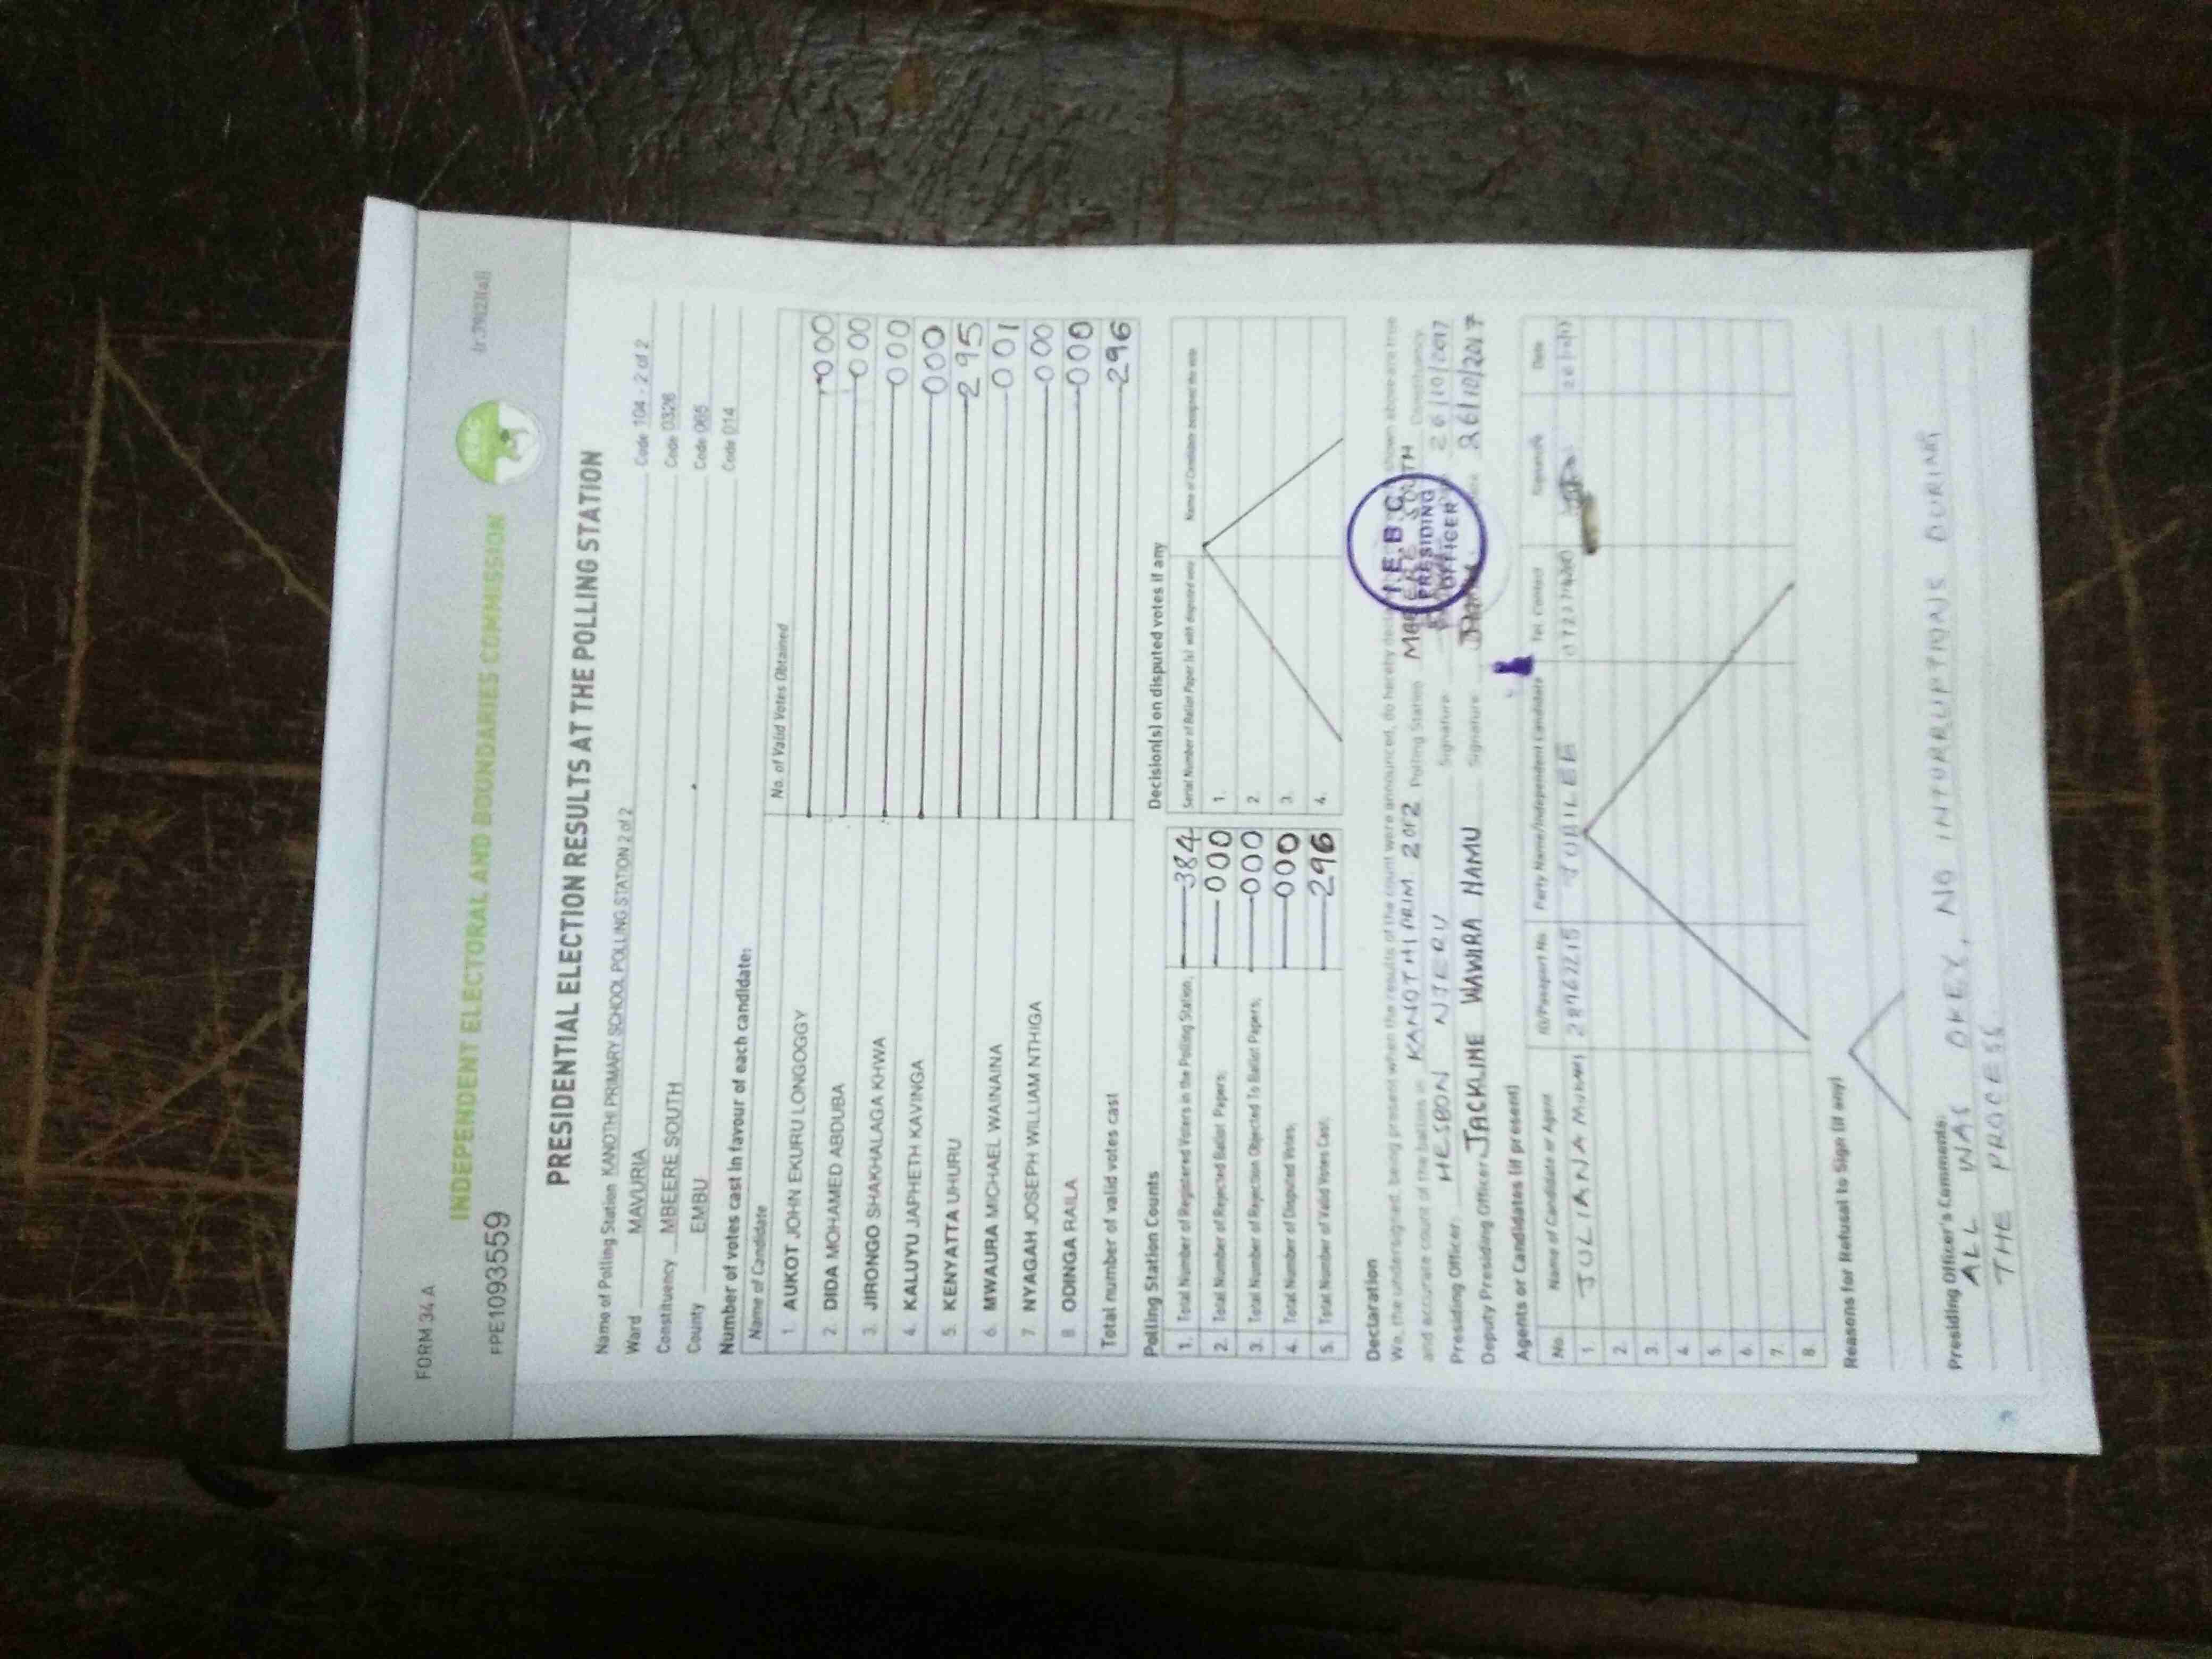 FORM 34 A
INDEPENDENT ELECTORAL AND BOUNDARIES COMMISSION
PPE1093559
PRESIDENTIAL ELECTION RESULTS AT THE POLLING STATION
Name of Polling Station KANOTHI PRIMARY SCHOOL POLLING STATION 2 of 2 Code 104 - 2 of 2
Ward MAVURIA Code 0326
Constituency MBEERE SOUTH Code 065
County EMBU Code 014
Number of votes cast in favour of each candidate:
Name of Candidate No. of Valid Votes Obtained
1. AUKOT JOHN EKURU LONGOGGY 000
2. DIDA MOHAMED ABDUBA 000
3. JIRONGO SHAKHALAGA KHWA 000
4. KALUYU JAPHETH KAVINGA 000
5. KENYATTA UHURU 295
6. MWAURA MICHAEL WAINAINA 001
7. NYAGAH JOSEPH WILLIAM NTHIGA 000
8. ODINGA RAILA 000
Total number of valid votes cast 296
Polling Station Counts
1. Total Number of Registered Voters in the Polling Station; 384
2. Total Number of Rejected Ballot Papers; 000
3. Total Number of Rejection Objected To Ballot Papers; 000
4. Total Number of Disputed Votes; 000
5. Total Number of Valid Votes Cast; 296
Decision(s) on disputed votes if any
Serial Number of Ballot Paper (s) with disputed vote Name of Candidate
1.
2.
3.
4.
Declaration
We, the undersigned, being present when the results of the count were announced, do hereby shown above are true
and accurate count of the ballots in KANOTHI PRIM 2 OF 2 Polling Station MBEERE SOUTH Constituency
Presiding Officer HESBON NJERU Signature 26/10/2017
Deputy Presiding Officer JACKLINE WAWIRA HAMU Signature 26/10/2017
I.E.B.C
PRESIDING
OFFICER
Agents or Candidates (if present)
No. Name of Candidate or Agent ID/Passport No. Party Name/Independent Candidate Tel. Contact Signature Date
1. JULIANA JUBILEE
2.
3.
4.
5.
6.
7.
8.
Reasons for Refusal to Sign (if any)
Presiding Officer's Comments:
ALL WAS OKEY, NO INTURRUPTIONS DURING
THE PROCESS